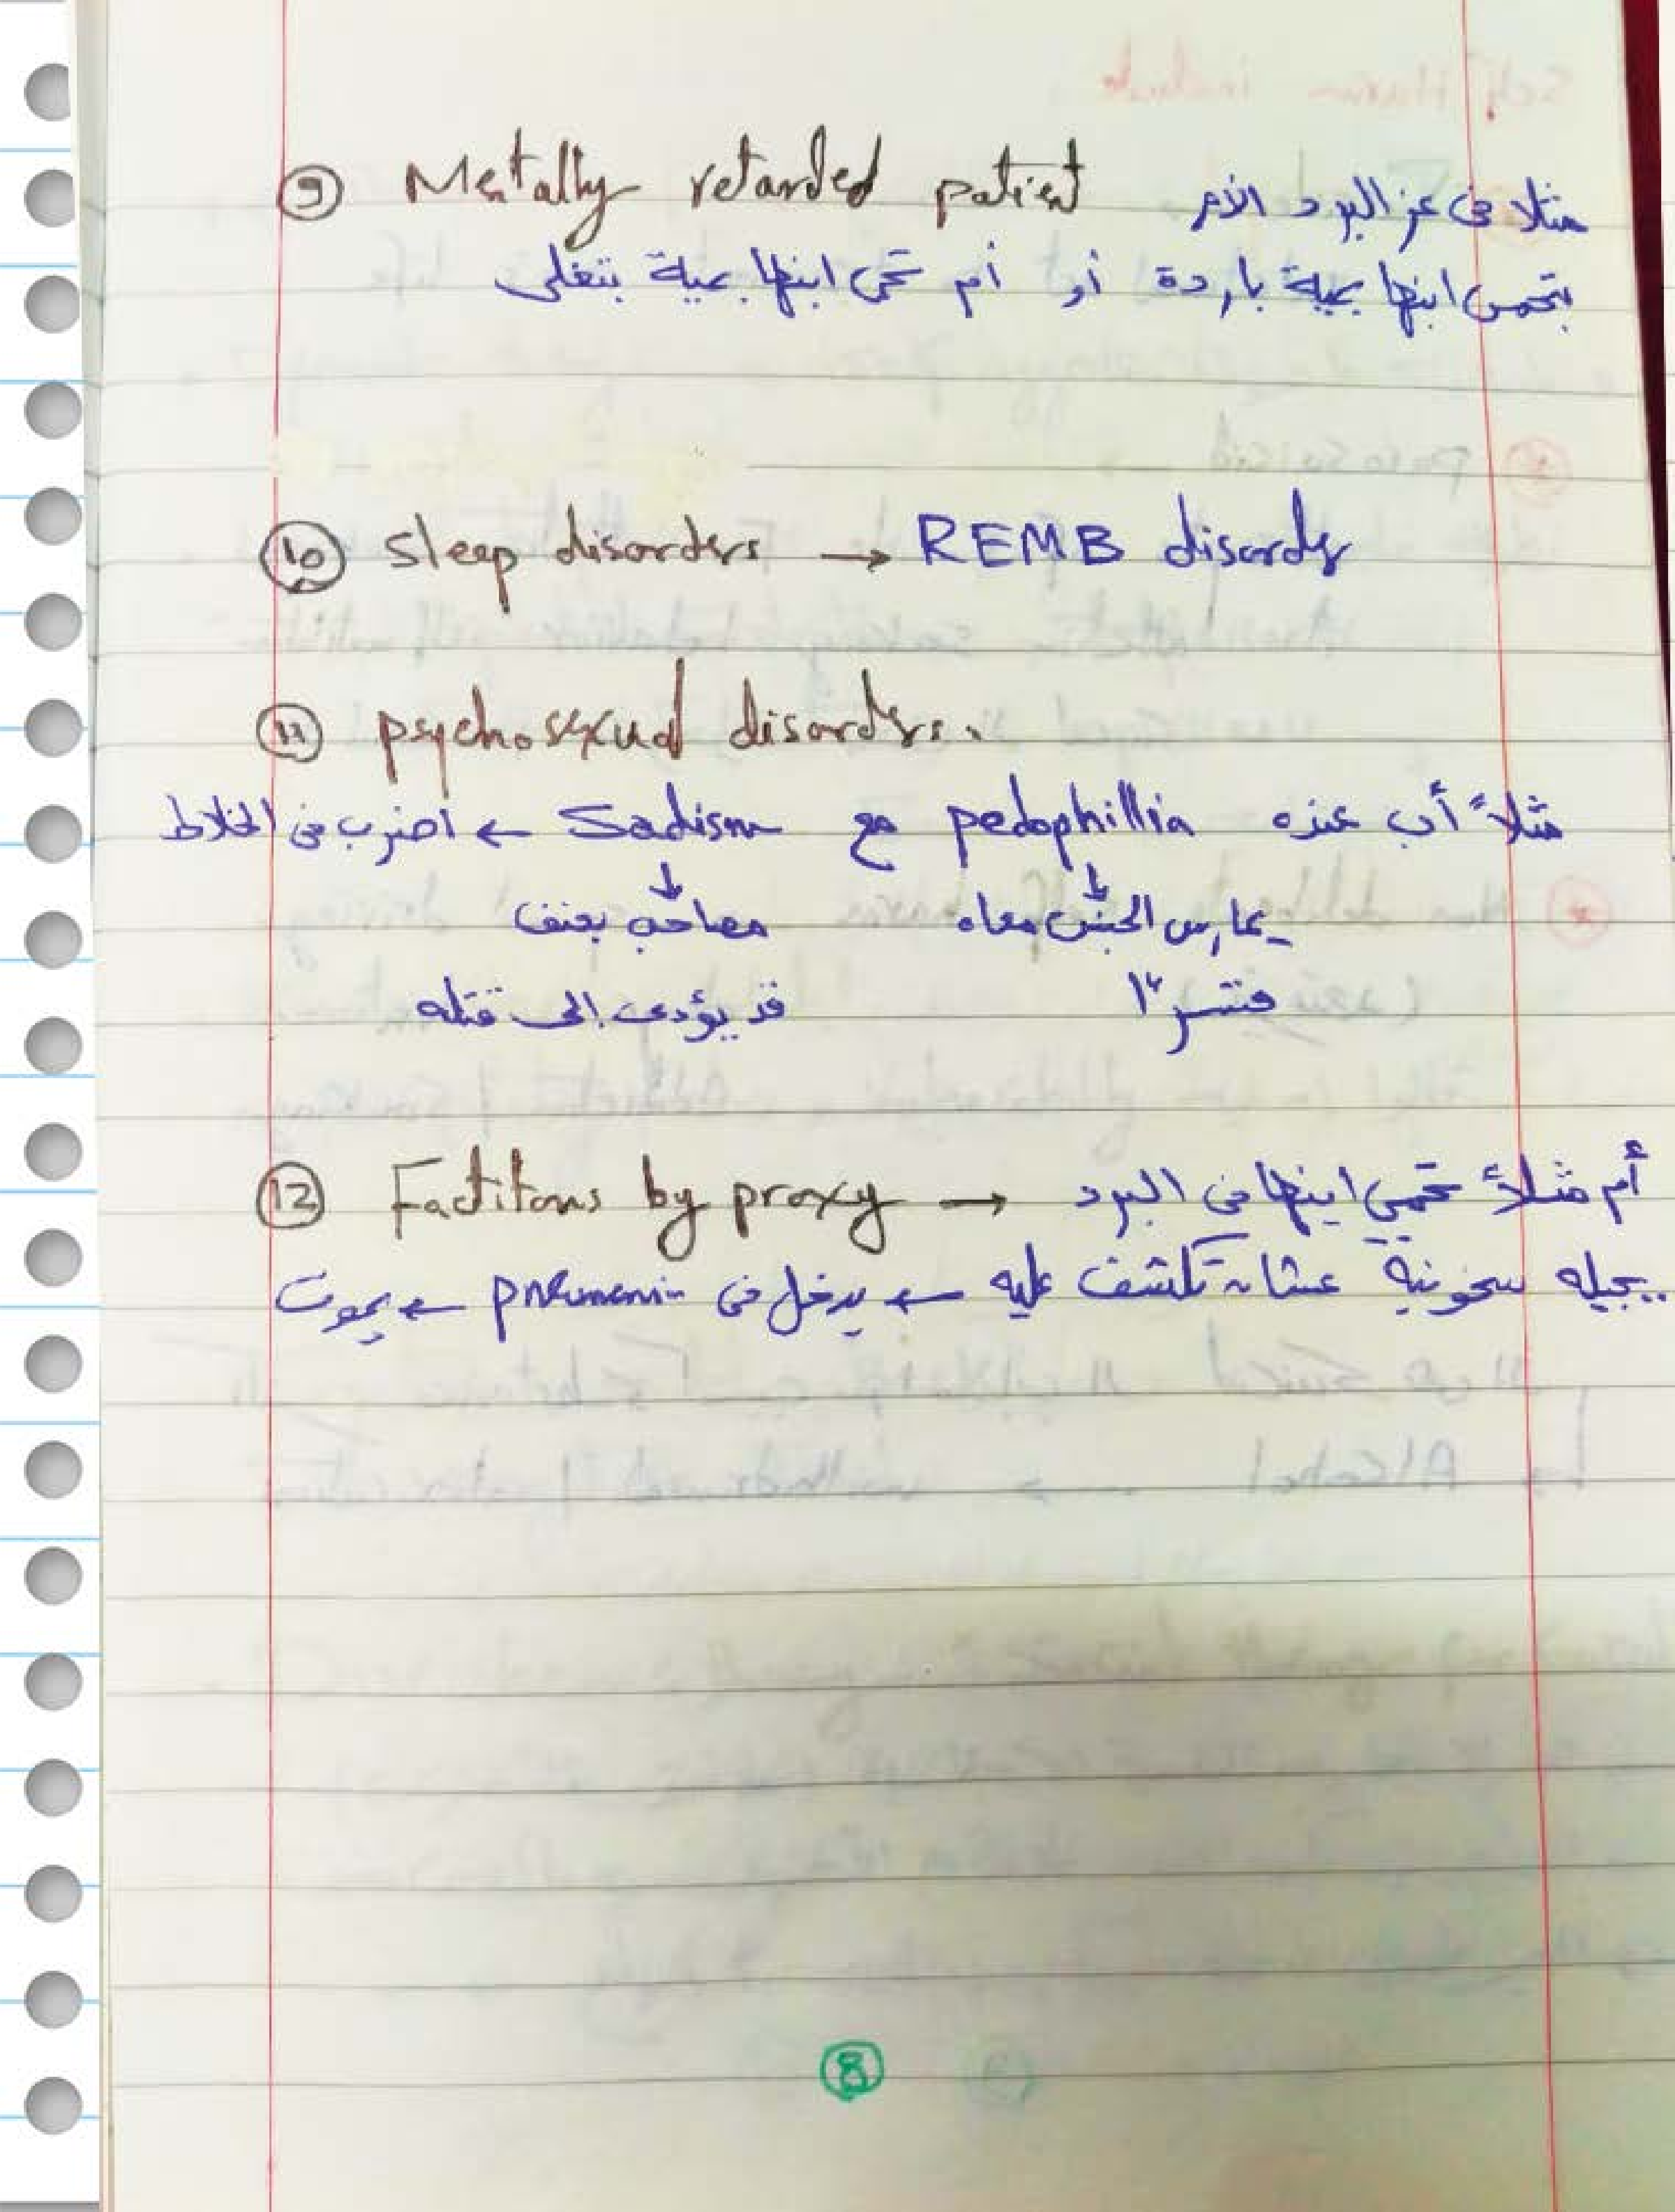 ⑨ Mentally retarded patient مثلا فى عز البرد الأم
بتحمى ابنها بمية باردة أو أم تحمى ابنها بمية بتغلى
⑩ Sleep disorders → REMB disorder
⑪ psychosexual disorders.
مثلاً أب عنده pedophillia مع Sadism ← اضرب فى الخلاط
↓ ↓
يمارس الجنس معاه بعنف
قد يؤدى إلى قتله
⑫ Factitous by proxy → أم مثلاً تحمي ابنها فى البرد
يجيله سخونية عشان تكشف عليه ← يدخل فى pneumonia ← يموت
⑧